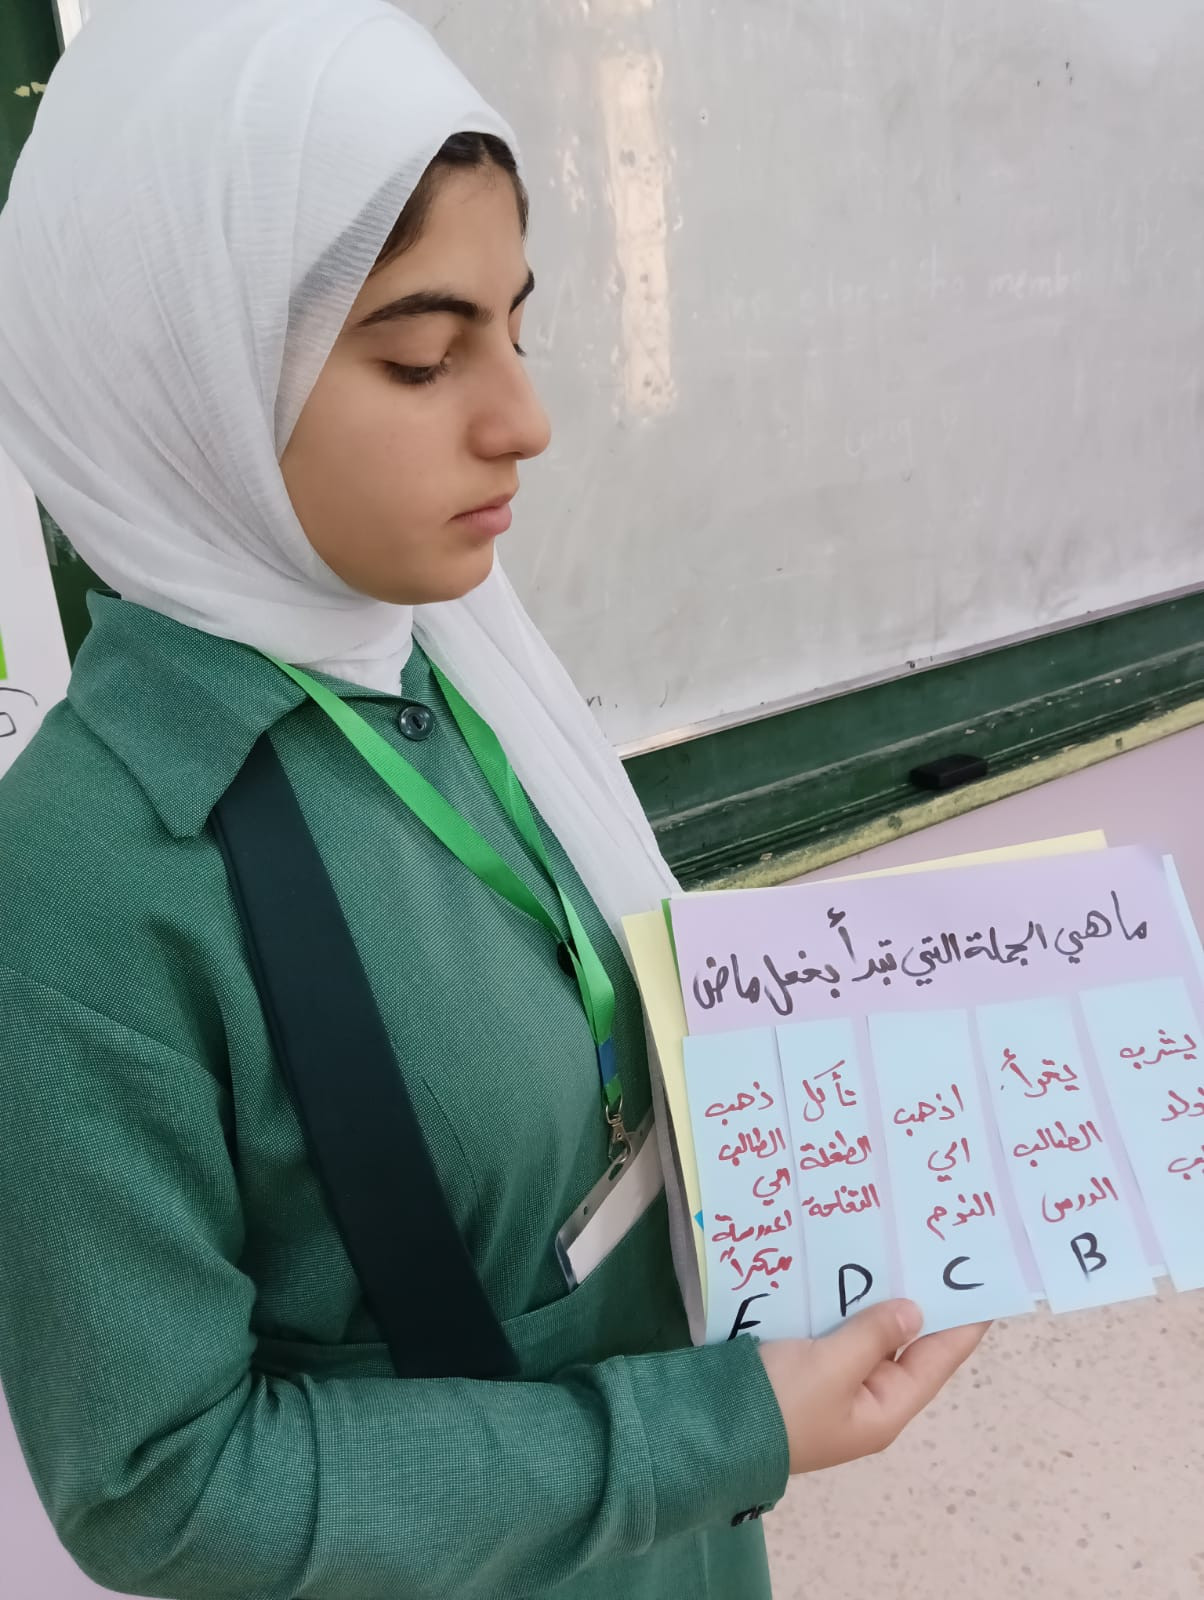 ما هي الجملة التي تبدأ بفعل ماض
يشرب
يقرأ
الطالب
الدرس
B
اذهب
الي
النوم
C
تأكل
الطفلة
التفاحة
D
ذهب
الطالب
الي
المدرسة
مبكراً
E